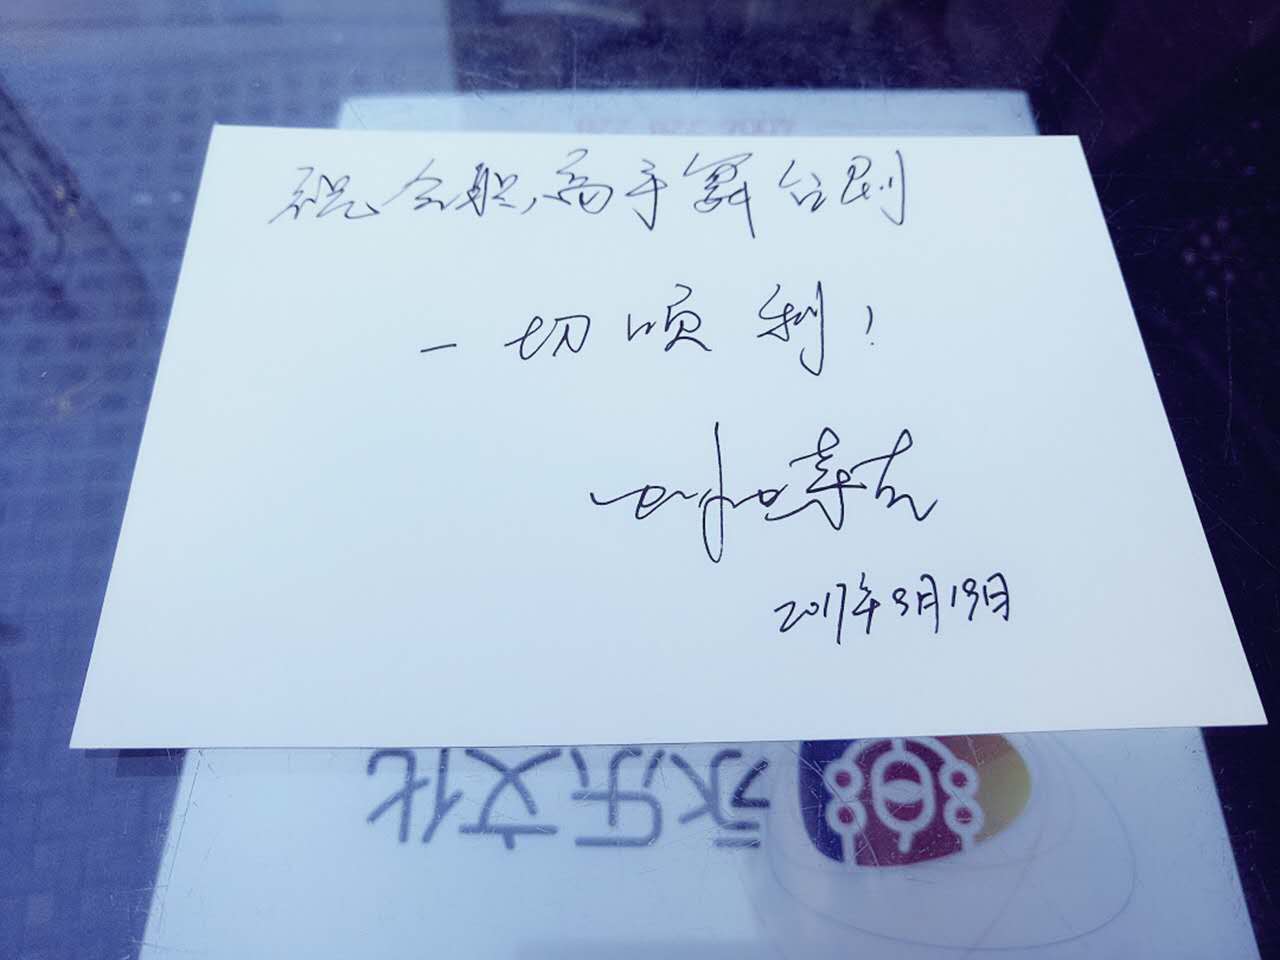 祝全职高手舞台剧
一切顺利!
2017年9月19日
永乐文化